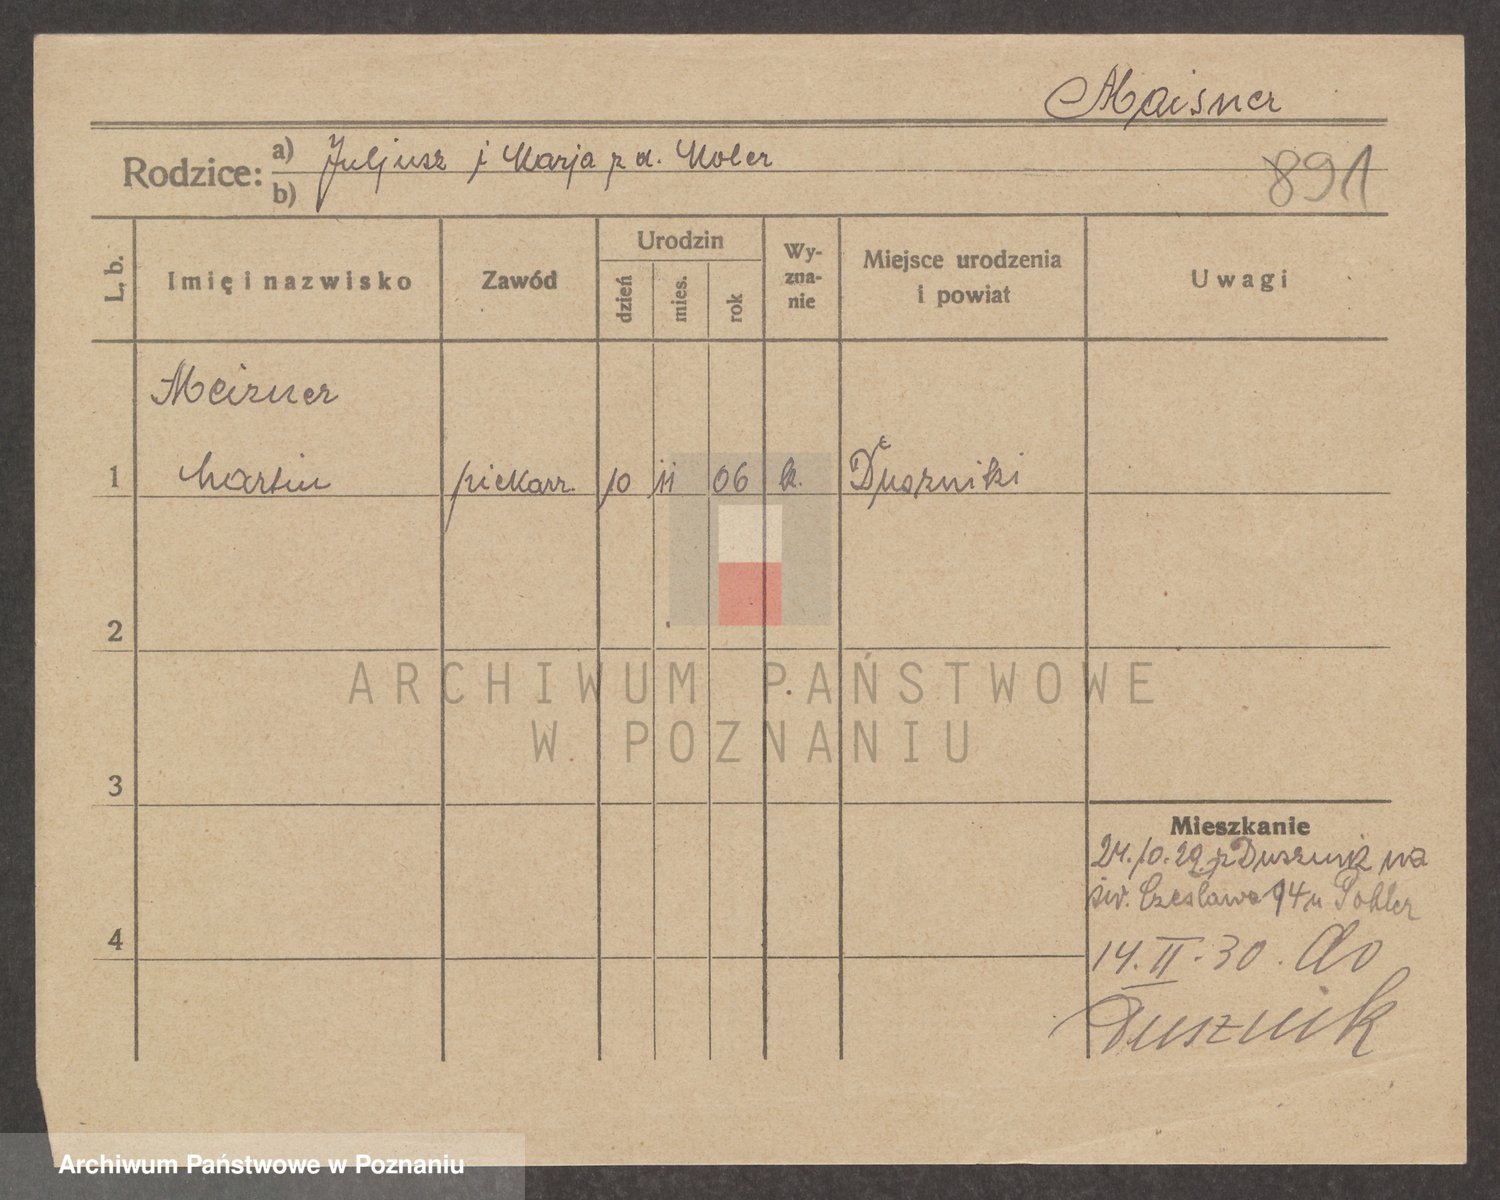 Maisner
Rodzice: a) Juljusz i Marja z d. Koler
b)
891
L. b. Imię i nazwisko Zawód Urodzin dzień mies. rok Wyznanie Miejsce urodzenia i powiat Uwagi
Meizner
1 Martin piekarz. 10 11 06 k. Duszniki
2
ARCHIWUM PAŃSTWOWE
W POZNANIU
3
Mieszkanie
24.10.29. z Dusznik na
św. Czesława 14 u Pohler
4
14.II.30. do
Dusznik
Archiwum Państwowe w Poznaniu